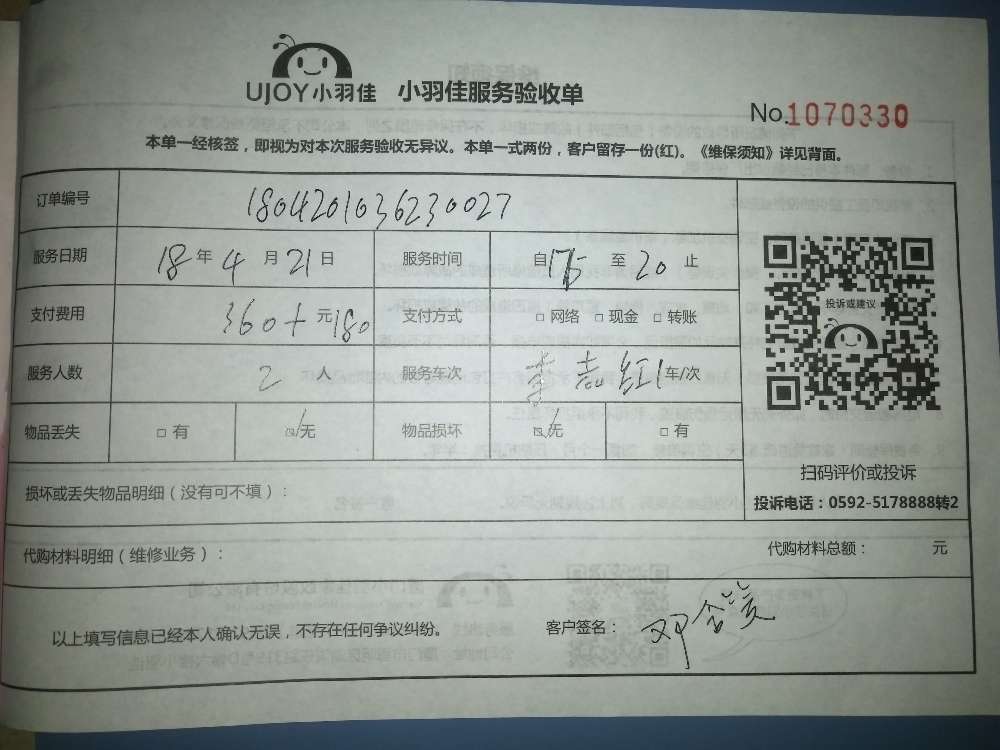 UJOY小羽佳 小羽佳服务验收单
No.1070330
本单一经核签，即视为对本次服务验收无异议。本单一式两份，客户留存一份(红)。《维保须知》详见背面。
订单编号 1804201036230027
服务日期 18年4月21日 服务时间 自 至20止
支付费用 360+元180 支付方式 □网络 □现金 □转账
服务人数 2人 服务车次 李志红1车/次
物品丢失 □有 ☑无 物品损坏 ☑无 □有
投诉或建议
扫码评价或投诉
投诉电话：0592-5178888转2
损坏或丢失物品明细（没有可不填）：
代购材料明细（维修业务）： 代购材料总额： 元
以上填写信息已经本人确认无误，不存在任何争议纠纷。 客户签名：邓含笑